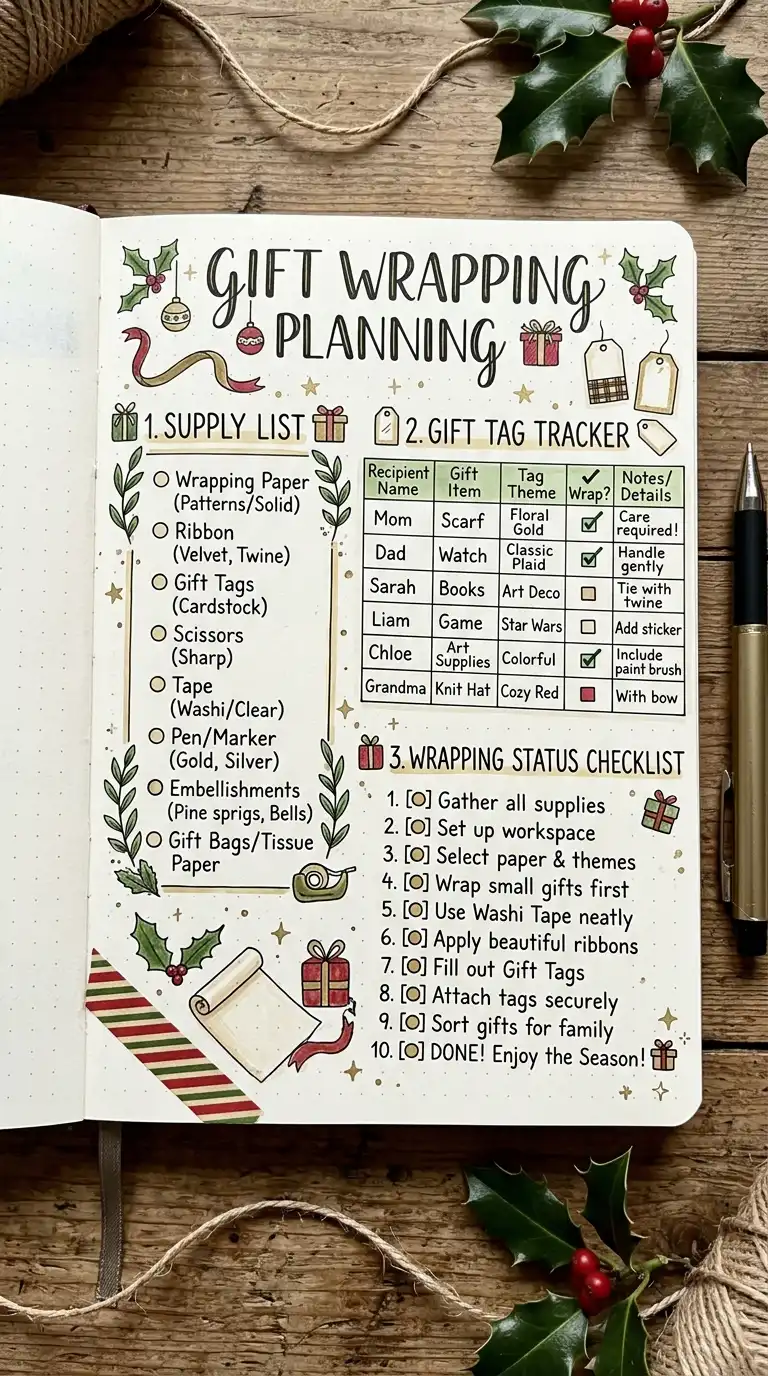 GIFT WRAPPING
PLANNING
1. SUPPLY LIST
Wrapping Paper
(Patterns/Solid)
Ribbon
(Velvet, Twine)
Gift Tags
(Cardstock)
Scissors
(Sharp)
Tape
(Washi/Clear)
Pen/Marker
(Gold, Silver)
Embellishments
(Pine sprigs, Bells)
Gift Bags/Tissue
Paper
2. GIFT TAG TRACKER
Recipient Name Gift Item Tag Theme ✓ Wrap? Notes/Details
Mom Scarf Floral Gold ✓ Care required!
Dad Watch Classic Plaid ✓ Handle gently
Sarah Books Art Deco Tie with twine
Liam Game Star Wars Add sticker
Chloe Art Supplies Colorful ✓ Include paint brush
Grandma Knit Hat Cozy Red With bow
3. WRAPPING STATUS CHECKLIST
1. [○] Gather all supplies
2. [○] Set up workspace
3. [○] Select paper & themes
4. [○] Wrap small gifts first
5. [○] Use Washi Tape neatly
6. [○] Apply beautiful ribbons
7. [○] Fill out Gift Tags
8. [○] Attach tags securely
9. [○] Sort gifts for family
10. [○] DONE! Enjoy the Season!